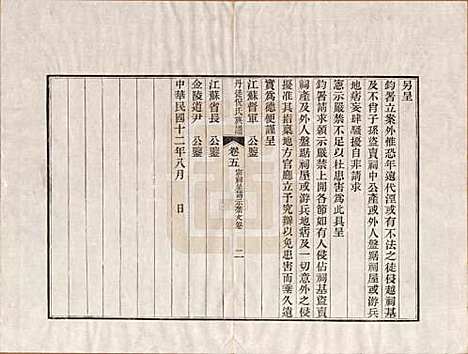 另呈
鈞署立案外惟恐年遠代湮或有不法之徒侵越祠基
及不肖子孫盜賣祠中公產或外人盤踞祠屋或游兵
地痞妄肆騷擾自非請求
憲示嚴禁不足以杜患害爲此具呈
鈞署請求頒示嚴禁上開各節如有人侵佔祠基盜賣
祠產及外人盤踞祠屋或游兵地痞及一切意外之侵
擾准其指稟地方官廳立予究辦以免患害而垂久遠
實爲德便謹呈
江蘇督軍 公鑒
丹徒倪氏族譜 卷五 二
江蘇省長 公鑒
金陵道尹 公鑒
中華民國十二年八月 日